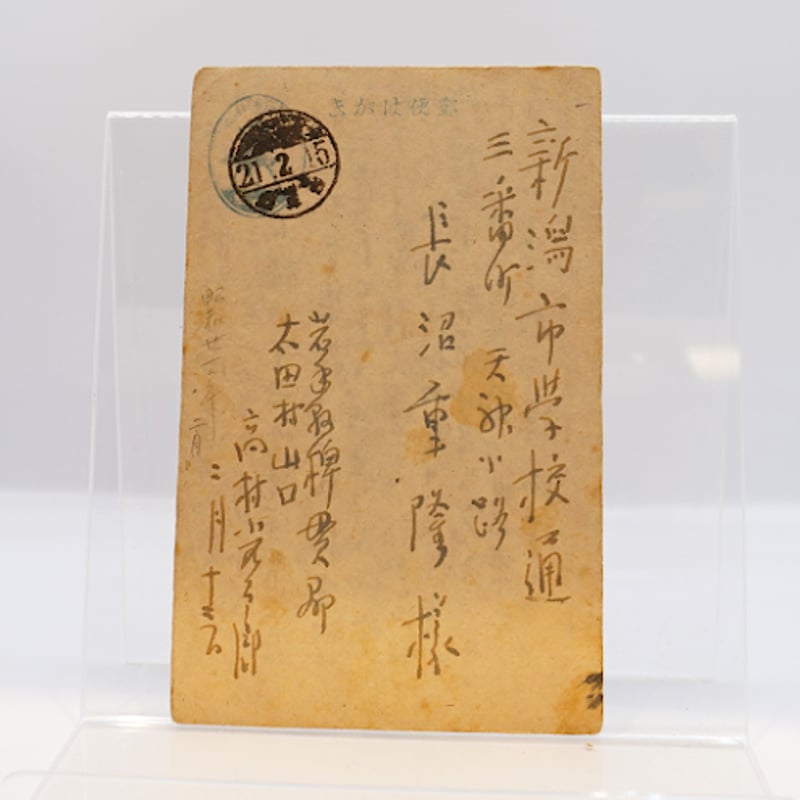 郵便はがき
21.2.15
新潟市學校通
三番町 天神小路
長沼重隆様
岩手縣稗貫郡
太田村山口
高村光太郎
二月十三日
昭和廿一年二月